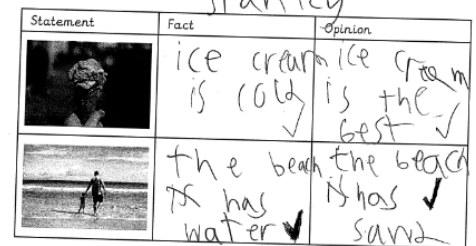 Statement Fact Opinion
ice cream
is cold ✓
ice cream
is the
best ✓
the beach
has
water ✓
the beach
has ✓
sand